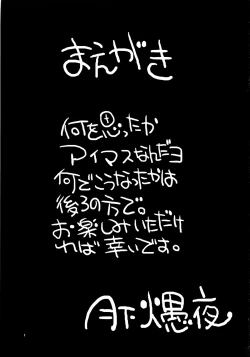 まえがき
何を思ったか
アイマスなんだヨ
何でこうなったかは
後ろの方で。
お楽しみいただけ
れば幸いです。
月下愚夜